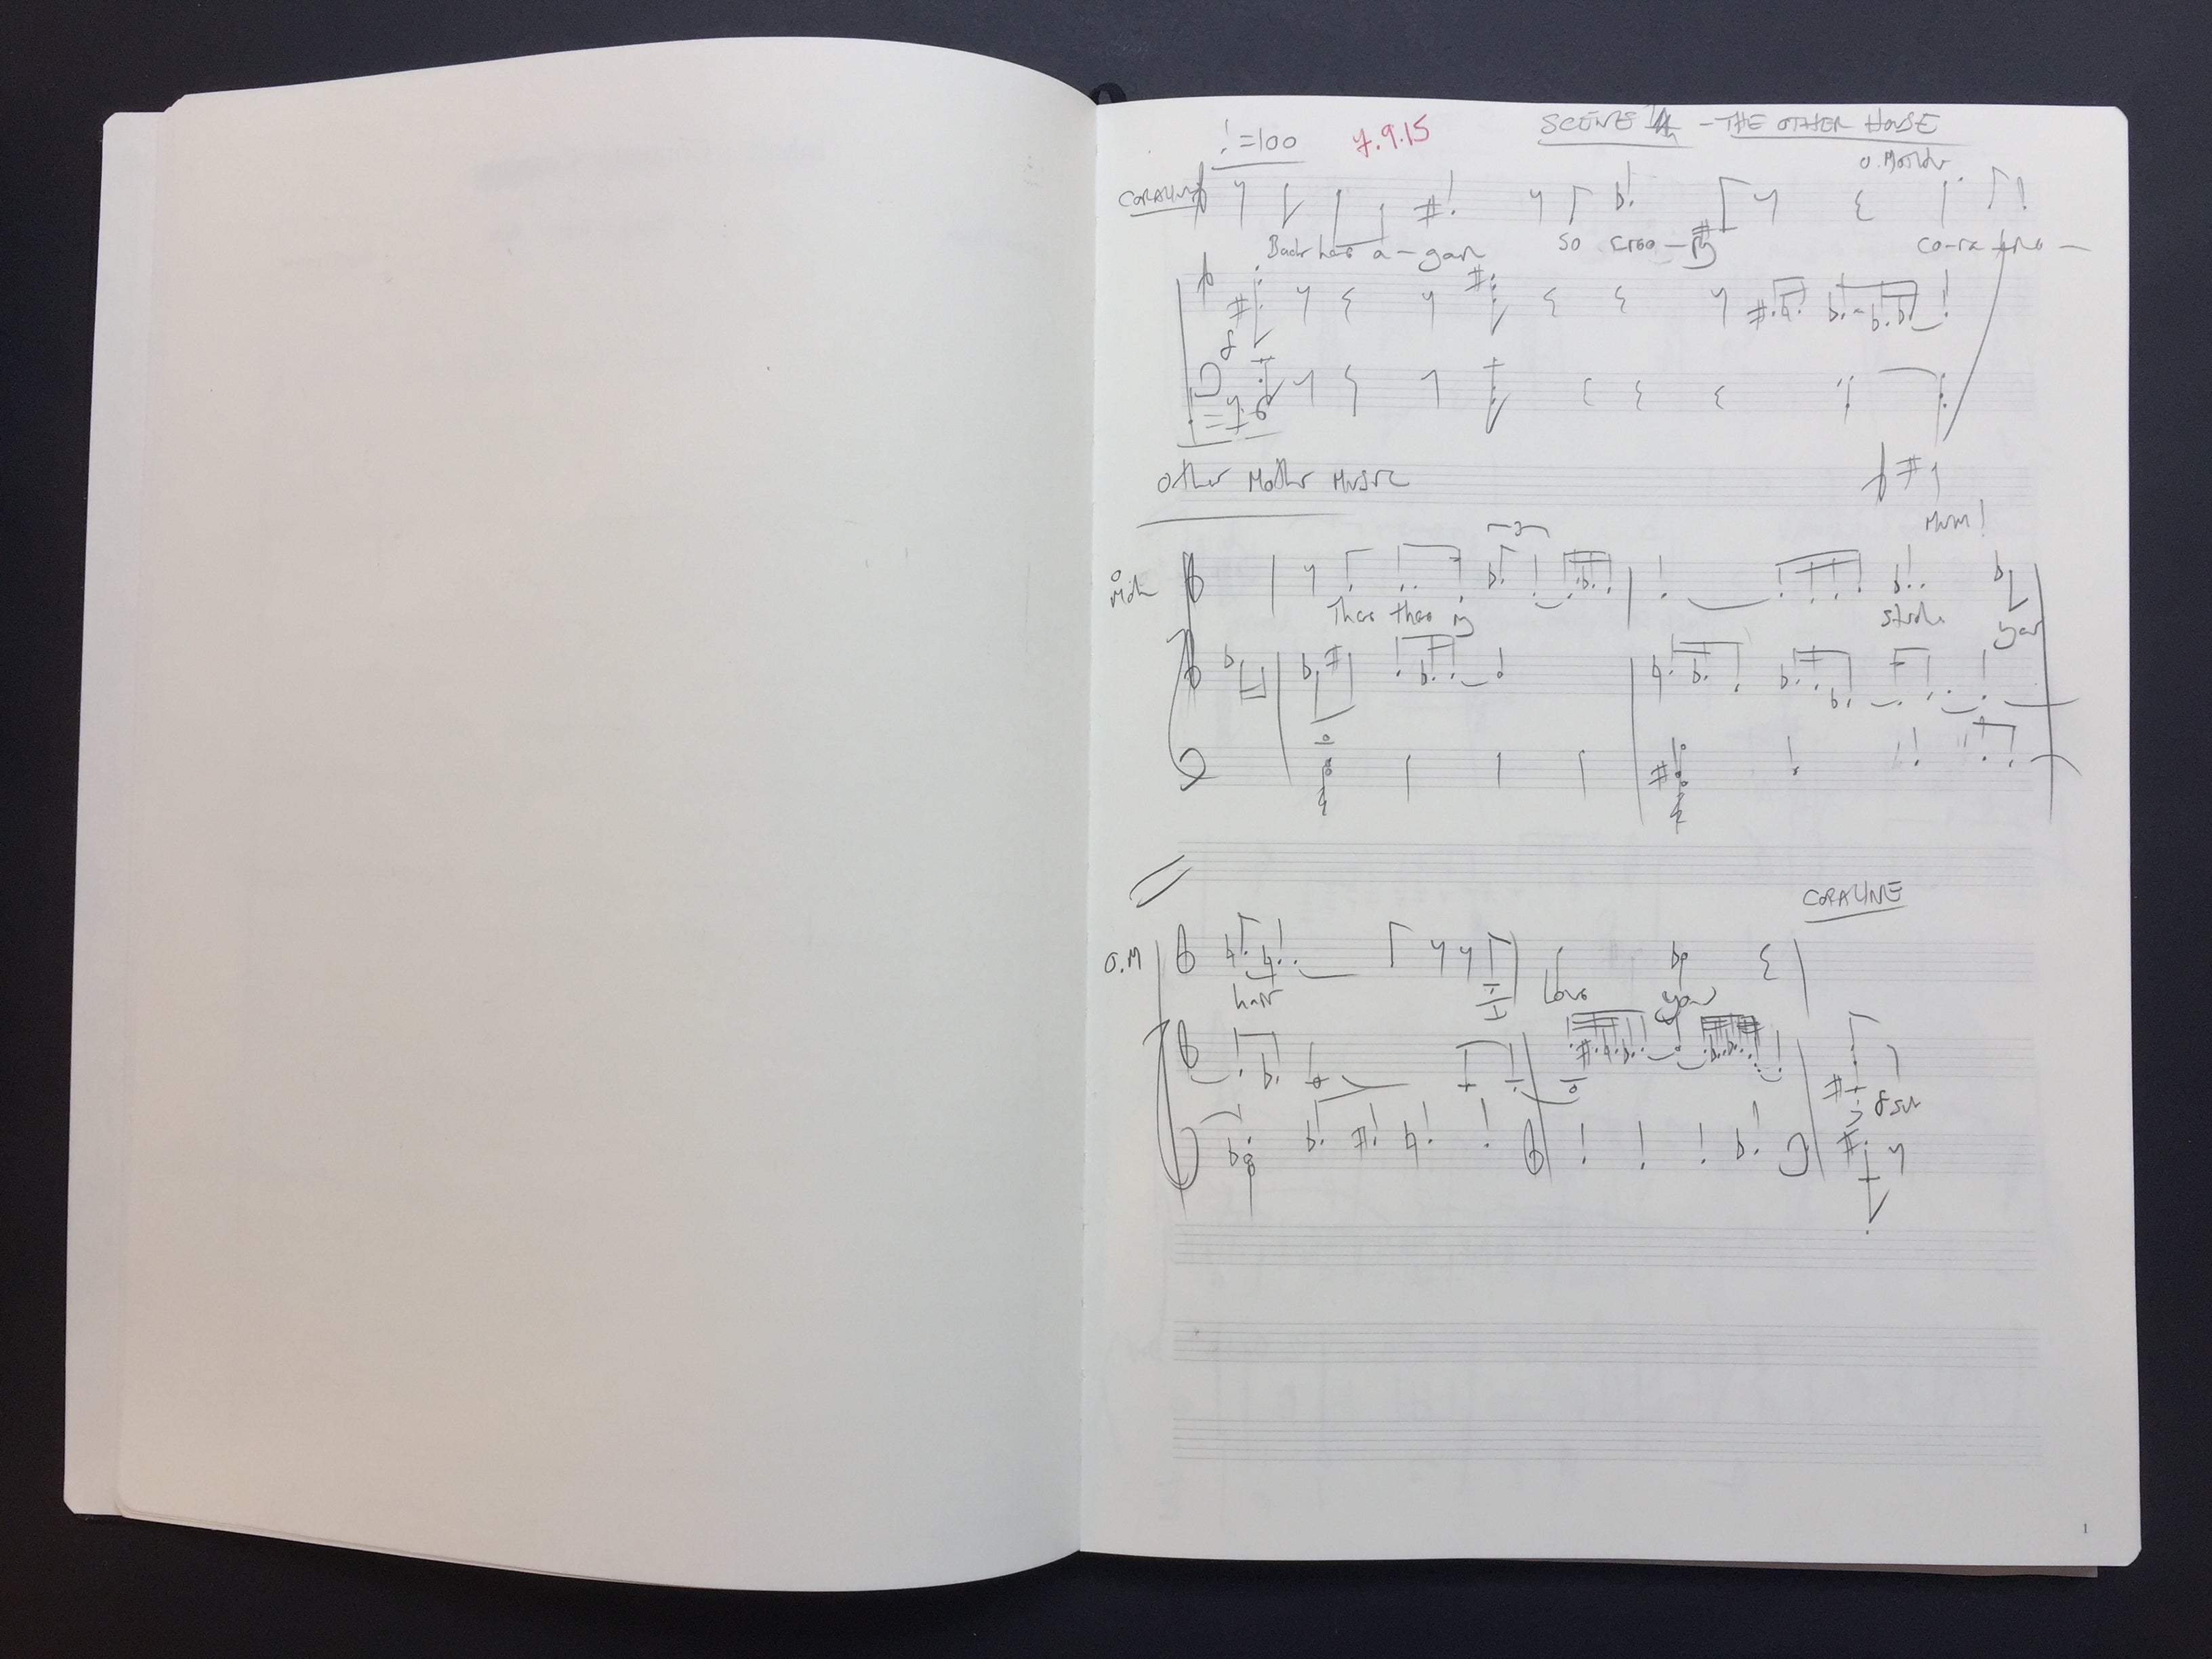 ♩=100 7.9.15 SCENE - THE OTHER HOUSE
O. Mother
CORALINE
Back here a-gain so cree-py Co-ra-line
8
Other Mother Music
Mum!
3
O
Moth
There there my stroke your
CORALINE
O.M
hair I love you
8
1